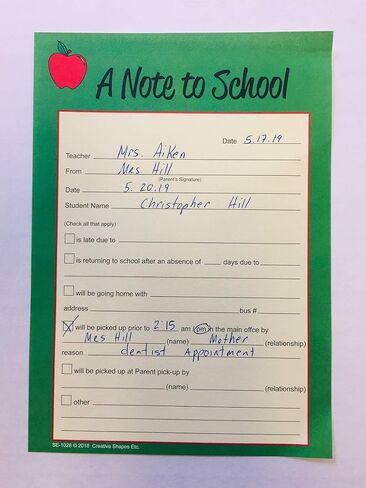 A Note to School
Date 5.17.19
Teacher Mrs. Aiken
From Mrs Hill
(Parent's Signature)
Date 5.20.19
Student Name Christopher Hill
(Check all that apply)
is late due to
is returning to school after an absence of days due to
will be going home with
address bus #
will be picked up prior to 2:15 am pm in the main offce by
Mrs Hill (name) Mother (relationship)
reason dentist Appointment
will be picked up at Parent pick-up by
(name) (relationship)
other
SE-1028 © 2018 Creative Shapes Etc.